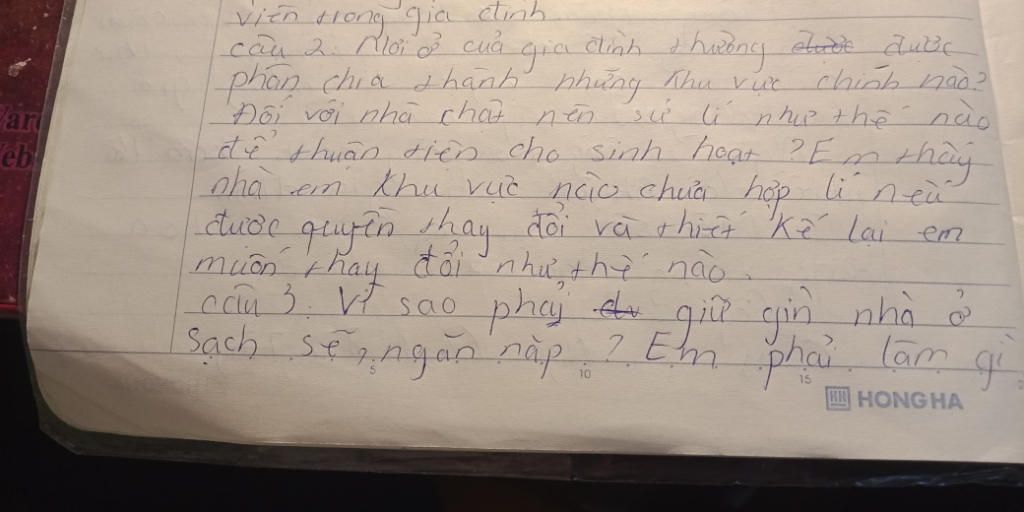 viên trong gia đình
câu 2. Nơi ở của gia đình thường được
phân chia thành những khu vực chính nào?
Đối với nhà chật nên sử lí như thế nào
để thuận tiện cho sinh hoạt ? Em thấy
nhà em khu vực nào chưa hợp lí nếu
được quyền thay đổi và thiết kế lại em
muốn thay đổi như thế nào.
câu 3. Vì sao phải giữ gìn nhà ở
sạch sẽ, ngăn nắp ? Em phải làm gì
5 10 15
HONG HA